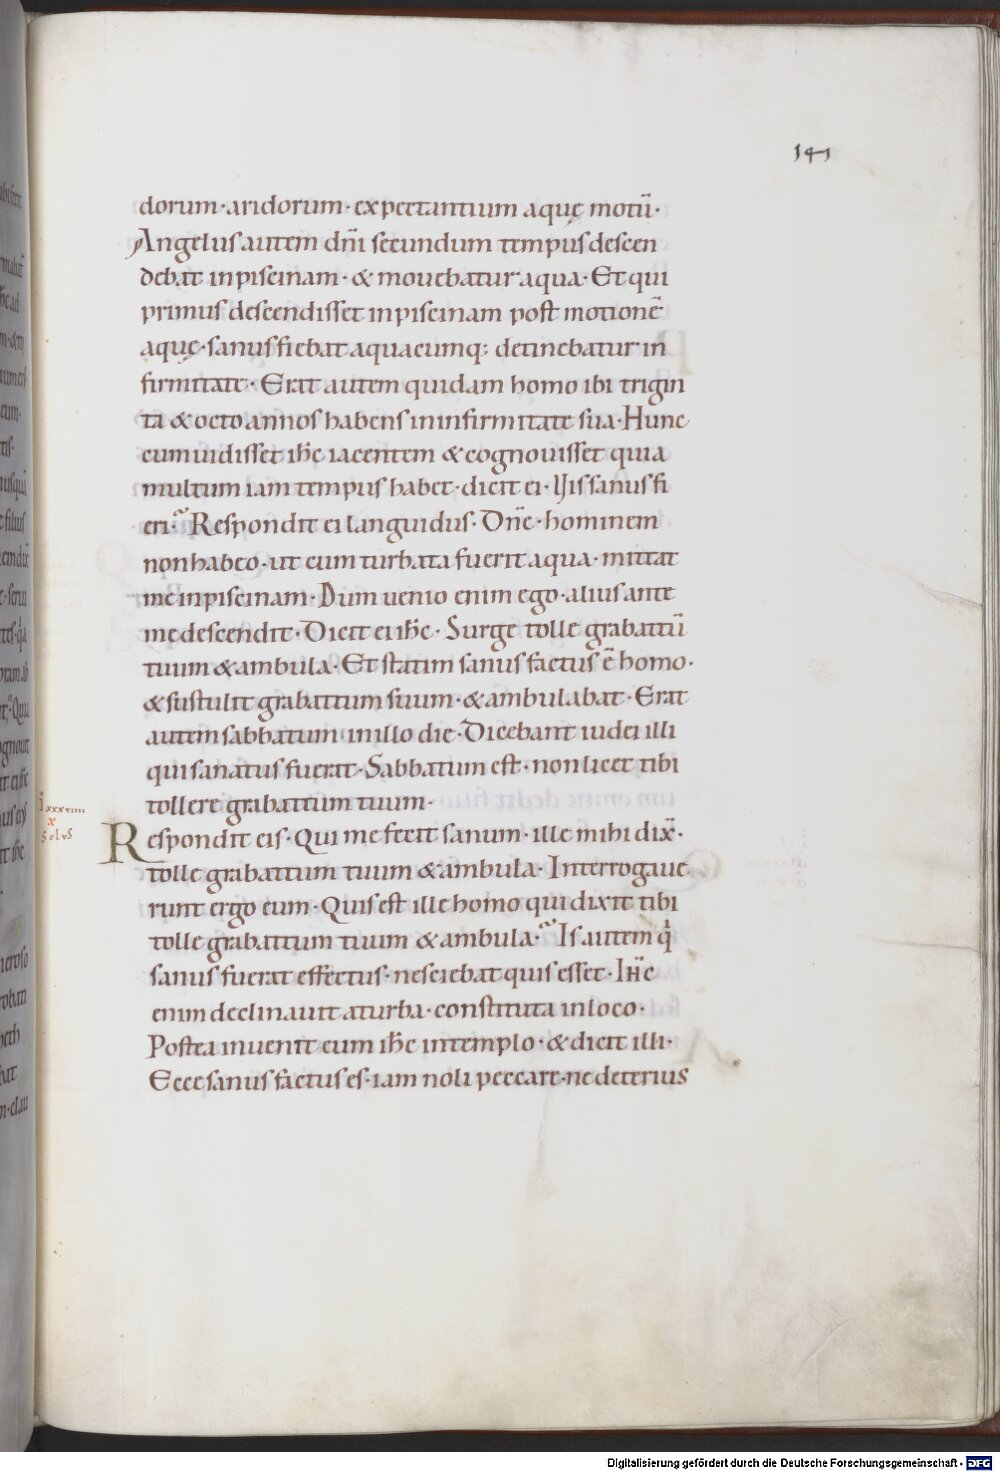 141
dorum · aridorum · expectantium aquę motū ·
Angelus autem dn̄i secundum tempus descen
debat in piscinam · & mouebatur aqua · Et qui
primus descendisset in piscinam post motionē
aquę · sanus fiebat a quacumq; detinebatur in
firmitate · Erat autem quidam homo ibi trigin
ta & octo annos habens in infirmitate sua · Hunc
cum uidisset ih̄c iacentem & cognouisset quia
multum iam tempus habet · dicit ei · Vis sanus fi
eri · Respondit ei languidus · Dn̄e · hominem
non habeo · ut cum turbata fuerit aqua · mittat
me in piscinam · Dum uenio enim ego · alius ante
me descendit · Dicit ei ih̄c · Surge tolle grabattū
tuum & ambula · Et statim sanus factus ē homo ·
& sustulit grabattum suum · & ambulabat · Erat
autem sabbatum · in illo die · Dicebant iudei illi
qui sanatus fuerat · Sabbatum est · non licet tibi
tollere grabattum tuum ·
xxxviiii
x
Solus
Respondit eis · Qui me fecit sanum · ille mihi dix̄ ·
tolle grabattum tuum & ambula · Interrogaue
runt ergo eum · Quis est ille homo qui dixit tibi
tolle grabattum tuum & ambula · Is autem q̇
sanus fuerat effectus · nesciebat quis esset · Ih̄c
enim declinauit a turba · constituta in loco ·
Postea inuenit eum ih̄c in templo · & dicit illi ·
Ecce sanus factus es · iam noli peccare · ne deterius
Digitalisierung gefördert durch die Deutsche Forschungsgemeinschaft - DFG